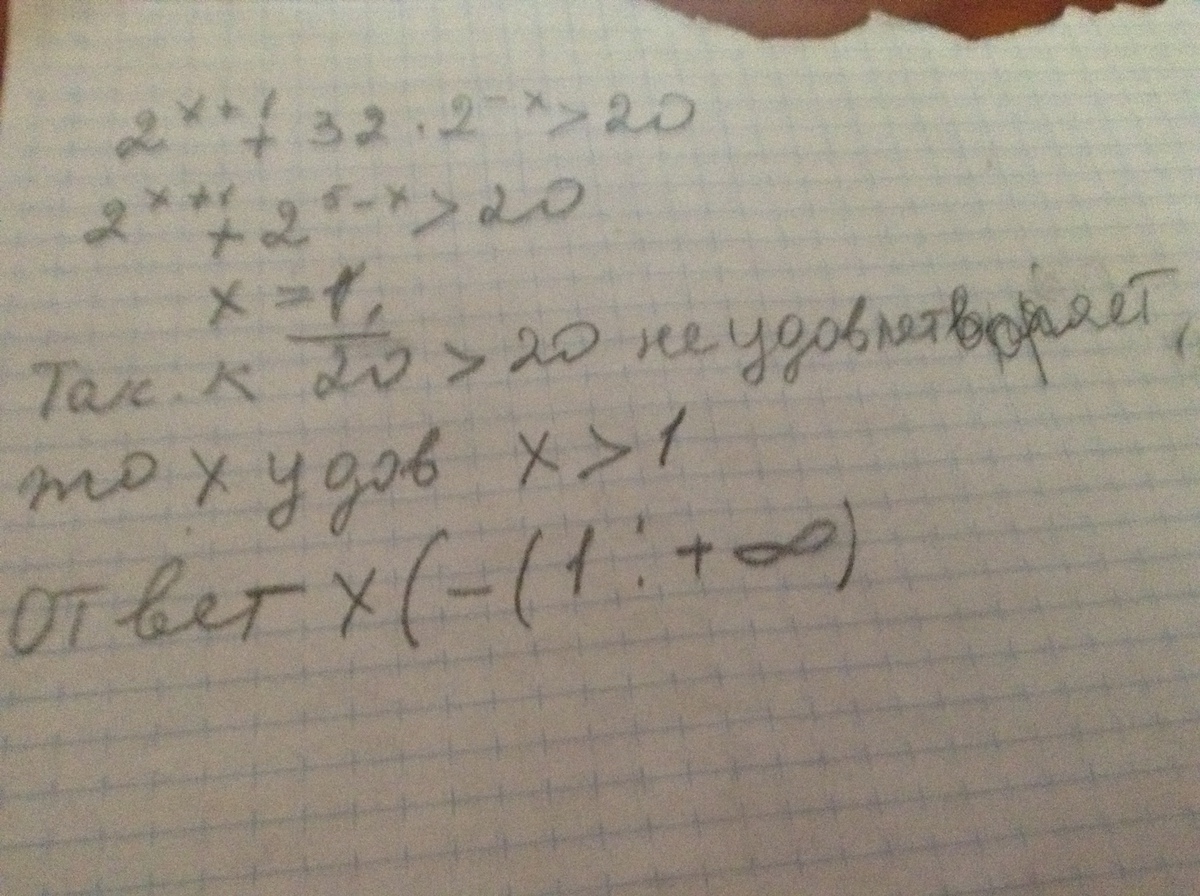 2^x+1 + 32 · 2^-x > 20
2^x+1 + 2^5-x > 20
x = 1,
Так. к 20 > 20 не удовлетворяет,
то x удов x > 1
Ответ x (- (1 ; + ∞)